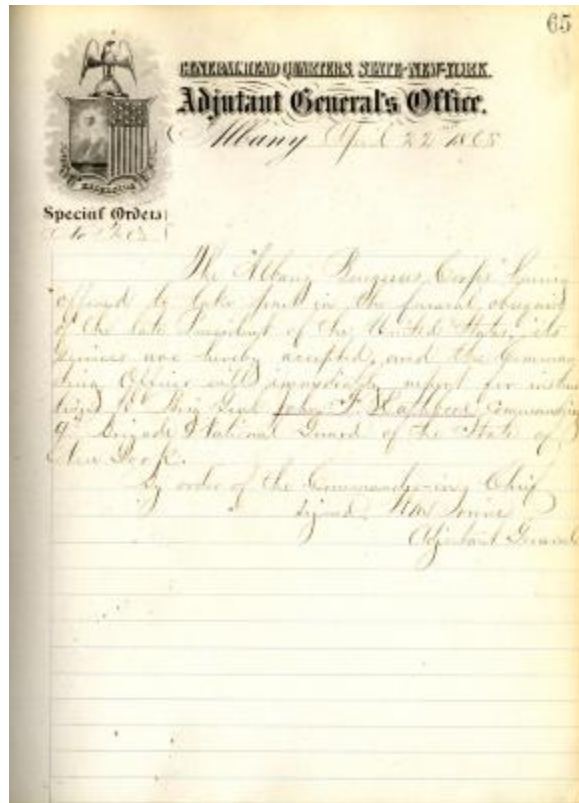 65
GENERAL HEAD QUARTERS, STATE-NEW-YORK.
Adjutant General's Office.
Albany April 22 1865
Special Orders
No
The Albany Burgesses Corps having
offered to take part in the funeral obsequies
of the late President of the United States, its
services are hereby accepted, and the Comman
ding Officer will immediately report for instruc
tions to Brig Genl John F. Rathbone Commanding
9th Brigade National Guard of the State of
New York.
By order of the Commander-in-Chief
signed
Adjutant General